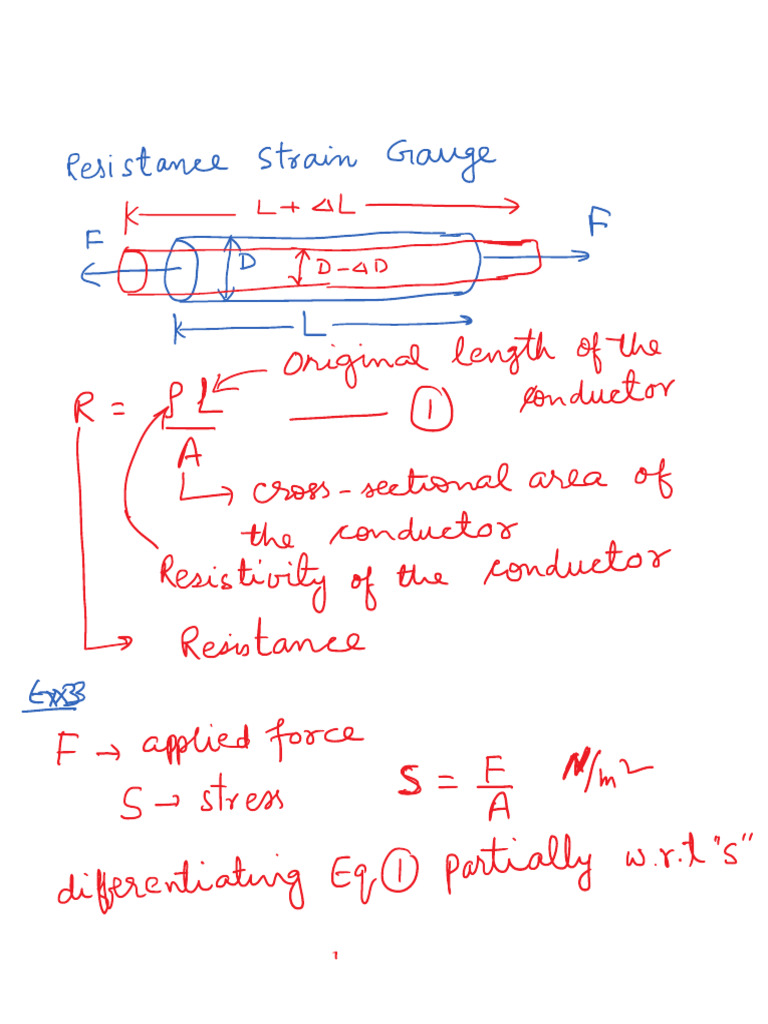 Resistance Strain Gauge
L + ΔL
F
F
D
D - ΔD
L
original length of the
conductor
R = ρL / A ——— ①
cross-sectional area of
the conductor
Resistivity of the conductor
Resistance
F → applied force
S → stress
S = F / A N/m2
differentiating Eq ① partially w.r.t "s"
1